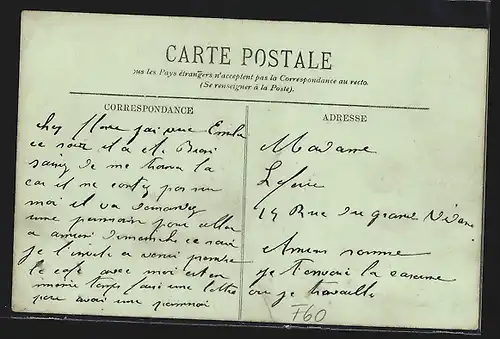 CARTE POSTALE
ous les Pays étrangers n'acceptent pas la Correspondance au recto.
(Se renseigner à la Poste).
CORRESPONDANCE
ADRESSE
chez flore jai vue Emile
ce soir il a et Bien
de me trouva la
car il ne conty pas sur
moi il va demandez
une permission pour aller
a amiens dimanche ce soir
je l'invite a venir prendre
le café avec moi et en
meme temps faire une lettre
pour avoir une permission
Madame
14 Rue du grand Vidame
Amiens somme
je t'envoie la caserne
ou je travaille
F60